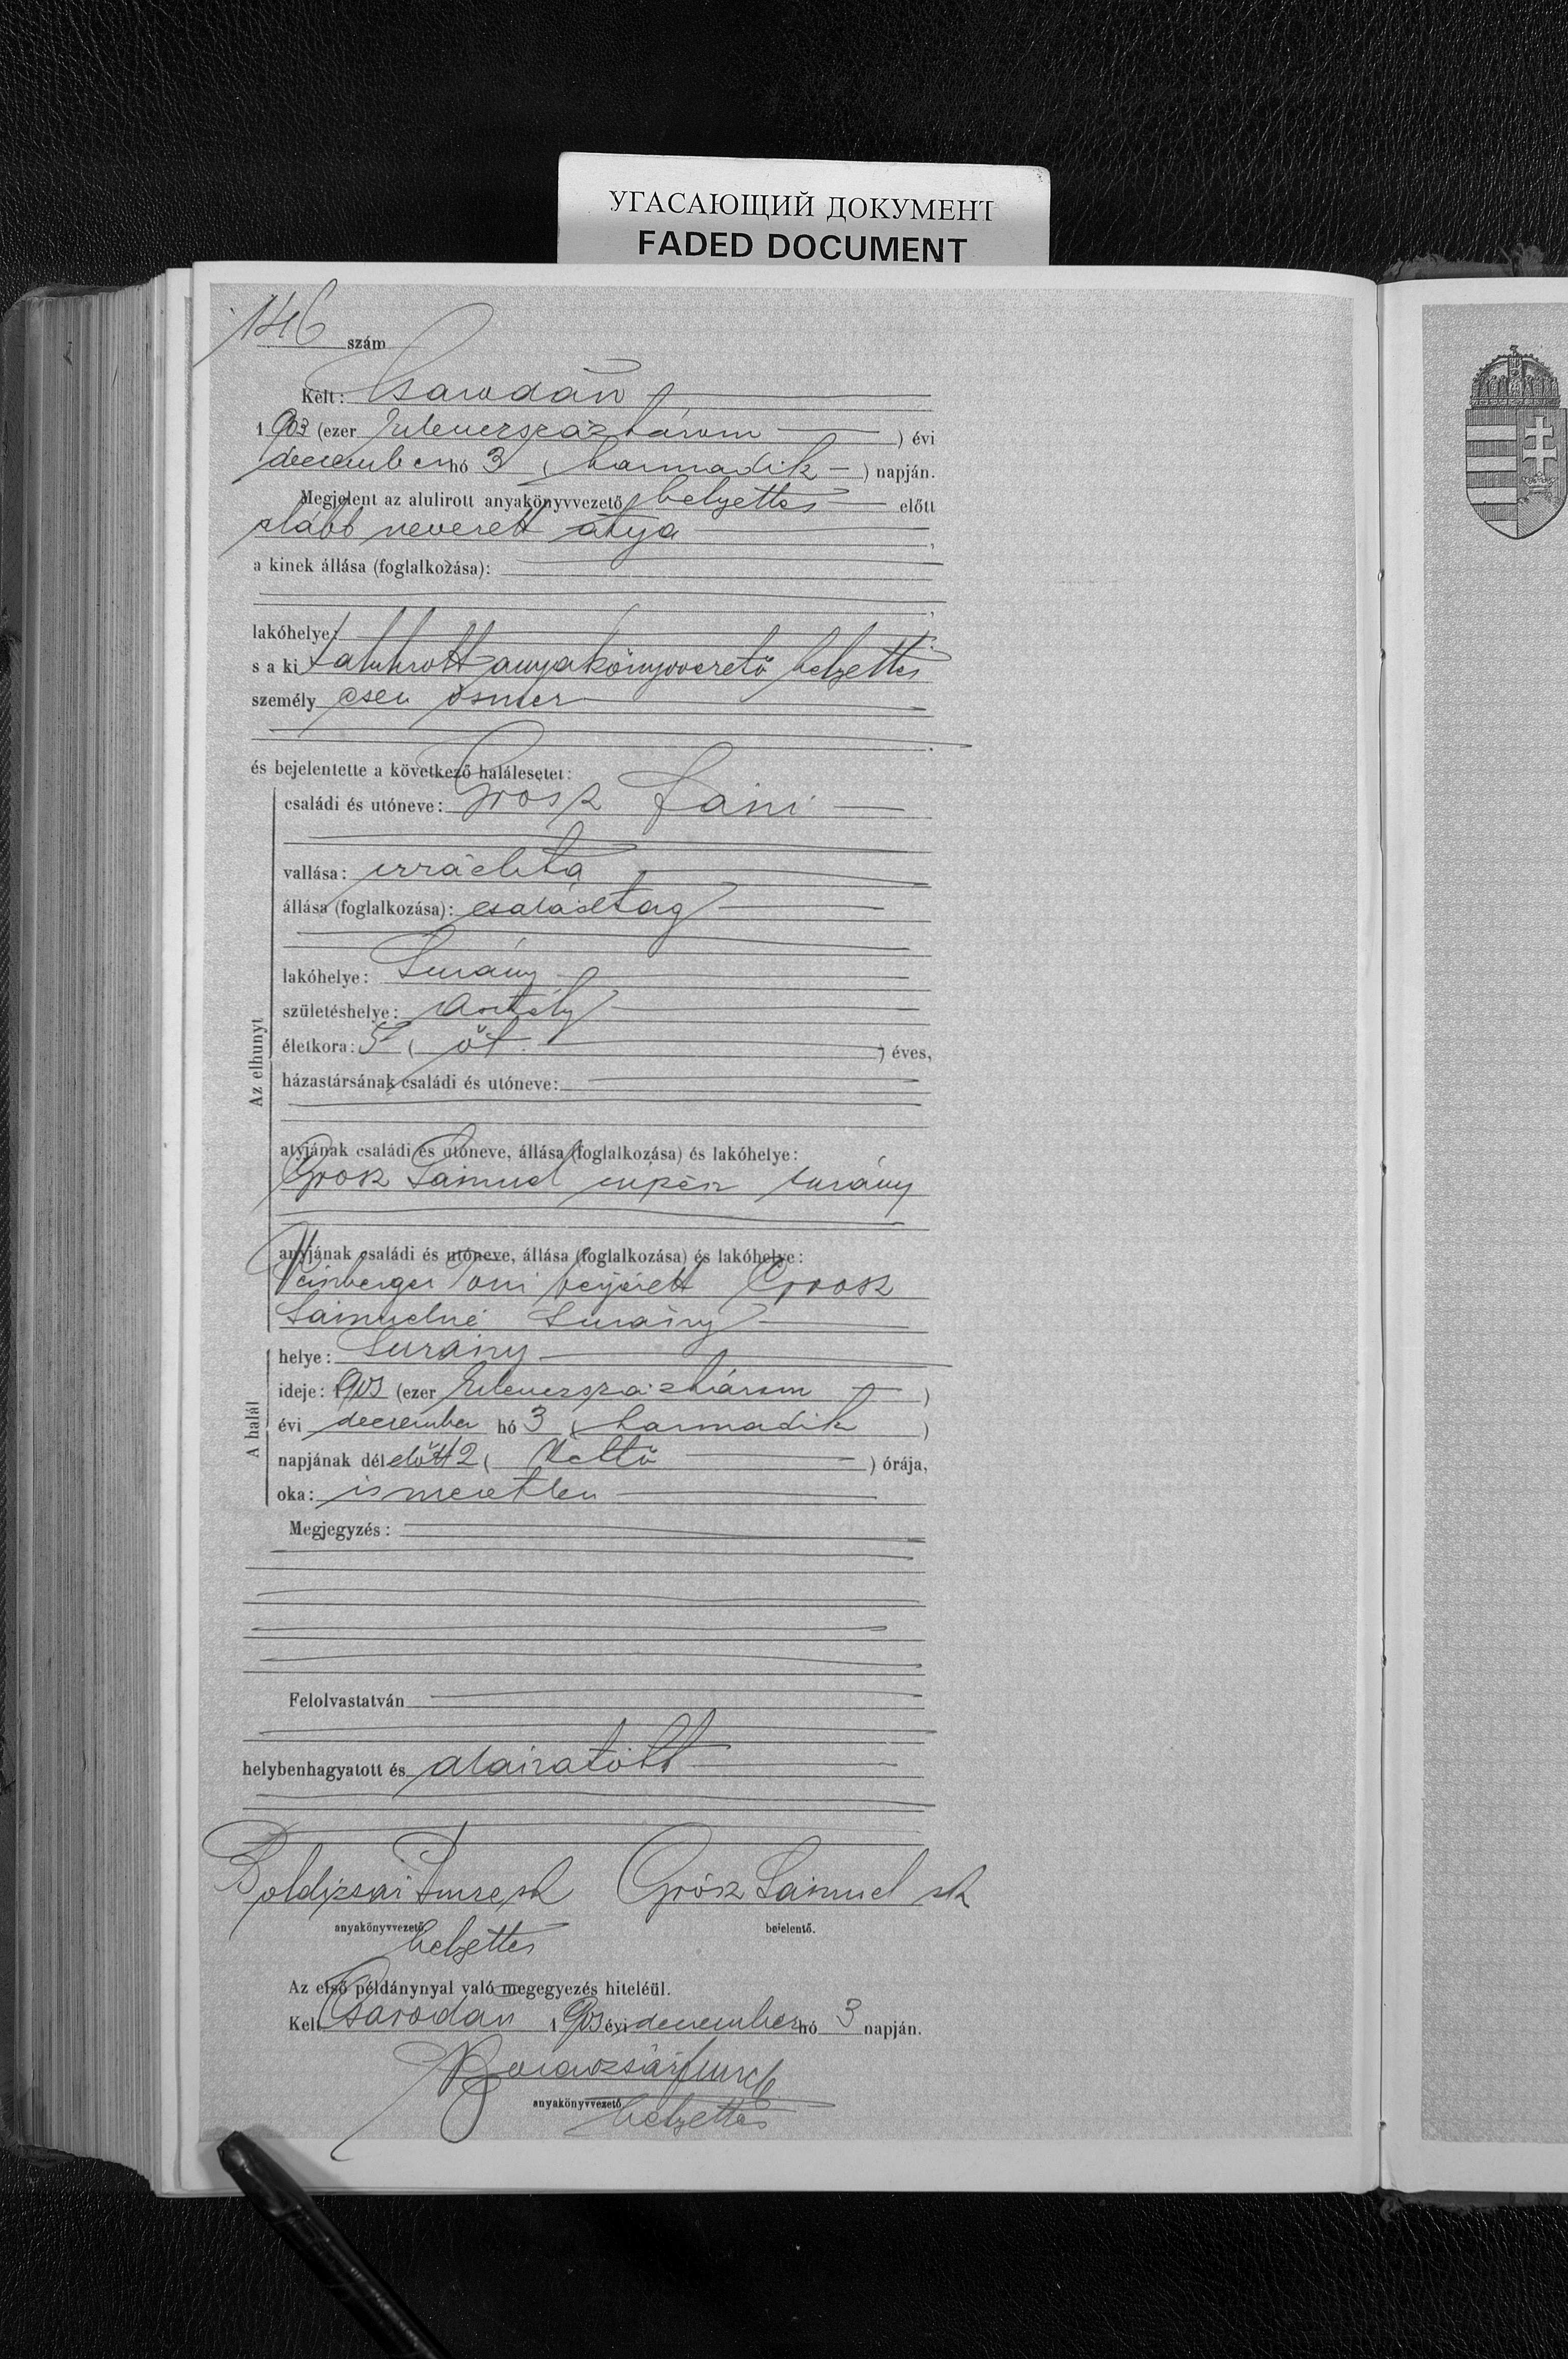 УГАСАЮЩИЙ ДОКУМЕНТ
FADED DOCUMENT
146 szám
Kelt: Csarodán
1903 (ezer kilenczszázhárom) évi
december hó 3 (harmadik) napján.
Megjelent az alulirott anyakönyvvezető helyettes előtt
alább nevezett atya,
a kinek állása (foglalkozása):
lakóhelye:
s a ki t alulirott anyakönyvvezető helyettes
személyesen ösmer
és bejelentette a következő halálesetet:
családi és utóneve: Grosz Fáni
vallása: izráelita
állása (foglalkozása): családtag
lakóhelye: Surány
születéshelye:
életkora: 5 (öt) éves,
házastársának családi és utóneve:
atyjának családi és utóneve, állása (foglalkozása) és lakóhelye:
Grosz Sámuel Surány
anyjának családi és utóneve, állása (foglalkozása) és lakóhelye:
Veinberger férjezett Grosz
Sámuelné Surány
Az elhunyt
helye: Surány
ideje: 1903 (ezer kilenczszázhárom)
évi december hó 3 (harmadik)
napjának délelőtt 2 (kettő) órája,
oka: ismeretlen
A halál
Megjegyzés:
Felolvastatván
helybenhagyatott és aláiratott
Boldizsár Imre sk Grósz Sámuel sk
anyakönyvvezető bejelentő.
helyettes
Az első példánynyal való megegyezés hiteléül.
Kelt Csarodán 1903 évi december hó 3 napján.
Boldizsár Imre
anyakönyvvezető
helyettes